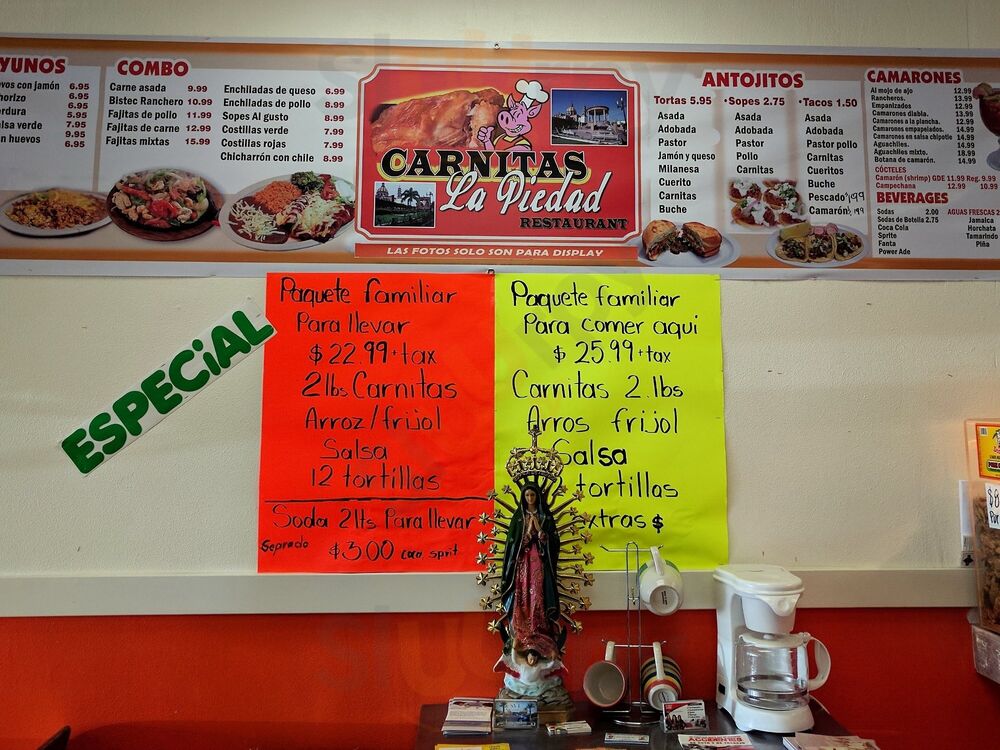 YUNOS
vos con jamón 6.95
horizo 6.95
rdura 5.95
alsa verde 7.95
9.95
n huevos 6.95
COMBO
Carne asada 9.99
Bistec Ranchero 10.99
Fajitas de pollo 11.99
Fajitas de carne 12.99
Fajitas mixtas 15.99
Enchiladas de queso 6.99
Enchiladas de pollo 8.99
Sopes Al gusto 8.99
Costillas verde 7.99
Costillas rojas 7.99
Chicharrón con chile 8.99
CARNITAS
La Piedad
RESTAURANT
LAS FOTOS SOLO SON PARA DISPLAY
ANTOJITOS
Tortas 5.95
Asada
Adobada
Pastor
Jamón y queso
Milanesa
Cuerito
Carnitas
Buche
•Sopes 2.75
Asada
Adobada
Pastor
Pollo
Carnitas
•Tacos 1.50
Asada
Adobada
Pastor pollo
Carnitas
Cueritos
Buche
Pescado $1.99
Camarón $1.99
CAMARONES
Al mojo de ajo 12.99
Rancheros. 12.99
Empanizados 12.99
Camarones diabla. 13.99
Camarones a la plancha. 12.99
Camarones empapelados. 14.99
Camarones en salsa chipotle 14.99
Aguachiles. 14.99
Aguachiles mixto. 18.99
Botana de camarón. 14.99
CÓCTELES
Camarón (shrimp) GDE 11.99 Reg. 9.99
Campechana 12.99 10.99
BEVERAGES
Sodas 2.00
Sodas de Botella 2.75
Coca Cola
Sprite
Fanta
Power Ade
AGUAS FRESCAS 2
Jamaica
Horchata
Tamarindo
Piña
ESPECiAL
Paquete familiar
Para llevar
$22.99+tax
2lbs Carnitas
Arroz/frijol
Salsa
12 tortillas
Soda 2lts Para llevar
Seprado $3.00 coca sprit
Paquete familiar
Para comer aquí
$25.99+tax
Carnitas 2.lbs
Arros frijol
Salsa
tortillas
xtras $
$8